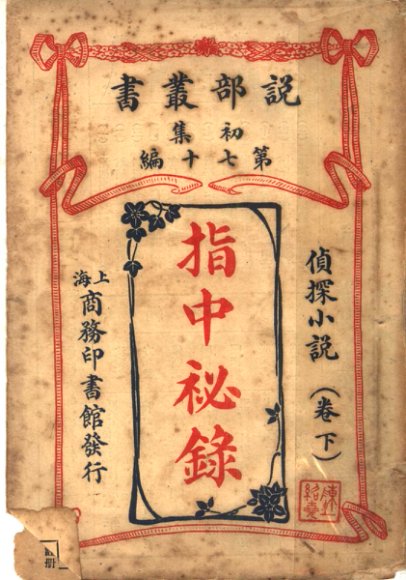 説部叢書
初集
第七十編
偵探小説（卷下）
指中祕錄
上海商務印書館發行